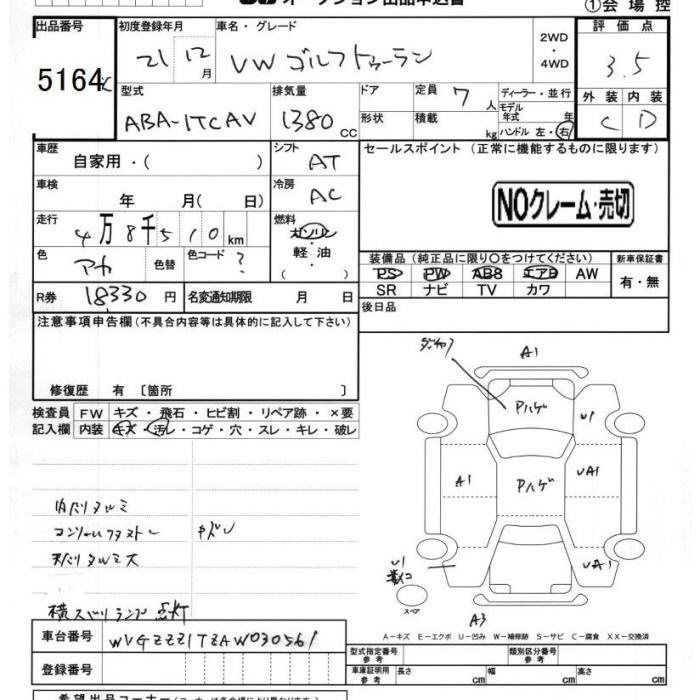 オークション出品申込書
①会場控
出品番号 初度登録年月 車名・グレード 2WD・4WD 評価点
5164 21 12月 VW ゴルフトゥーラン 3.5
型式 排気量 ドア 定員 7人 ディーラー・並行 外装 内装
ABA-1TCAV 1380CC 形状 積載 kg モデル年式 年 C D
ハンドル 左・右
車歴 自家用・( ) シフト AT セールスポイント (正常に機能するものに限ります)
車検 年 月(日) 冷房 AC NOクレーム・売切
走行 4万8千510km 燃料 ガソリン・軽油・( )
色 アカ 色替 色コード ? 装備品 (純正品に限り○をつけてください) 新車保証書
PS PW ABS エアB AW 有・無
SR ナビ TV カワ
R券 18330円 名変通知期限 月 日 後日品
注意事項申告欄 (不具合内容等は具体的に記入して下さい)
修復歴 有 〔箇所 〕
検査員記入欄 FW キズ・飛石・ヒビ割・リペア跡・×要
内装 キズ・汚レ・コゲ・穴・スレ・キレ・破レ
A1
Pハゲ
U1
A1 Pハゲ UA1
内バリタルミ
キズ
天バリタルミ大
U1 UA1
スペア
A3
横スベリランプ点灯
A-キズ E-エクボ U-凹み W-補修跡 S-サビ C-腐食 XX-交換済
車台番号 WVGZZZ1TZAW030561
型式指定番号 参考 類別区分番号 参考
登録番号 車庫証明用 参考 長さ cm 幅 cm 高さ cm
希望出品コーナー